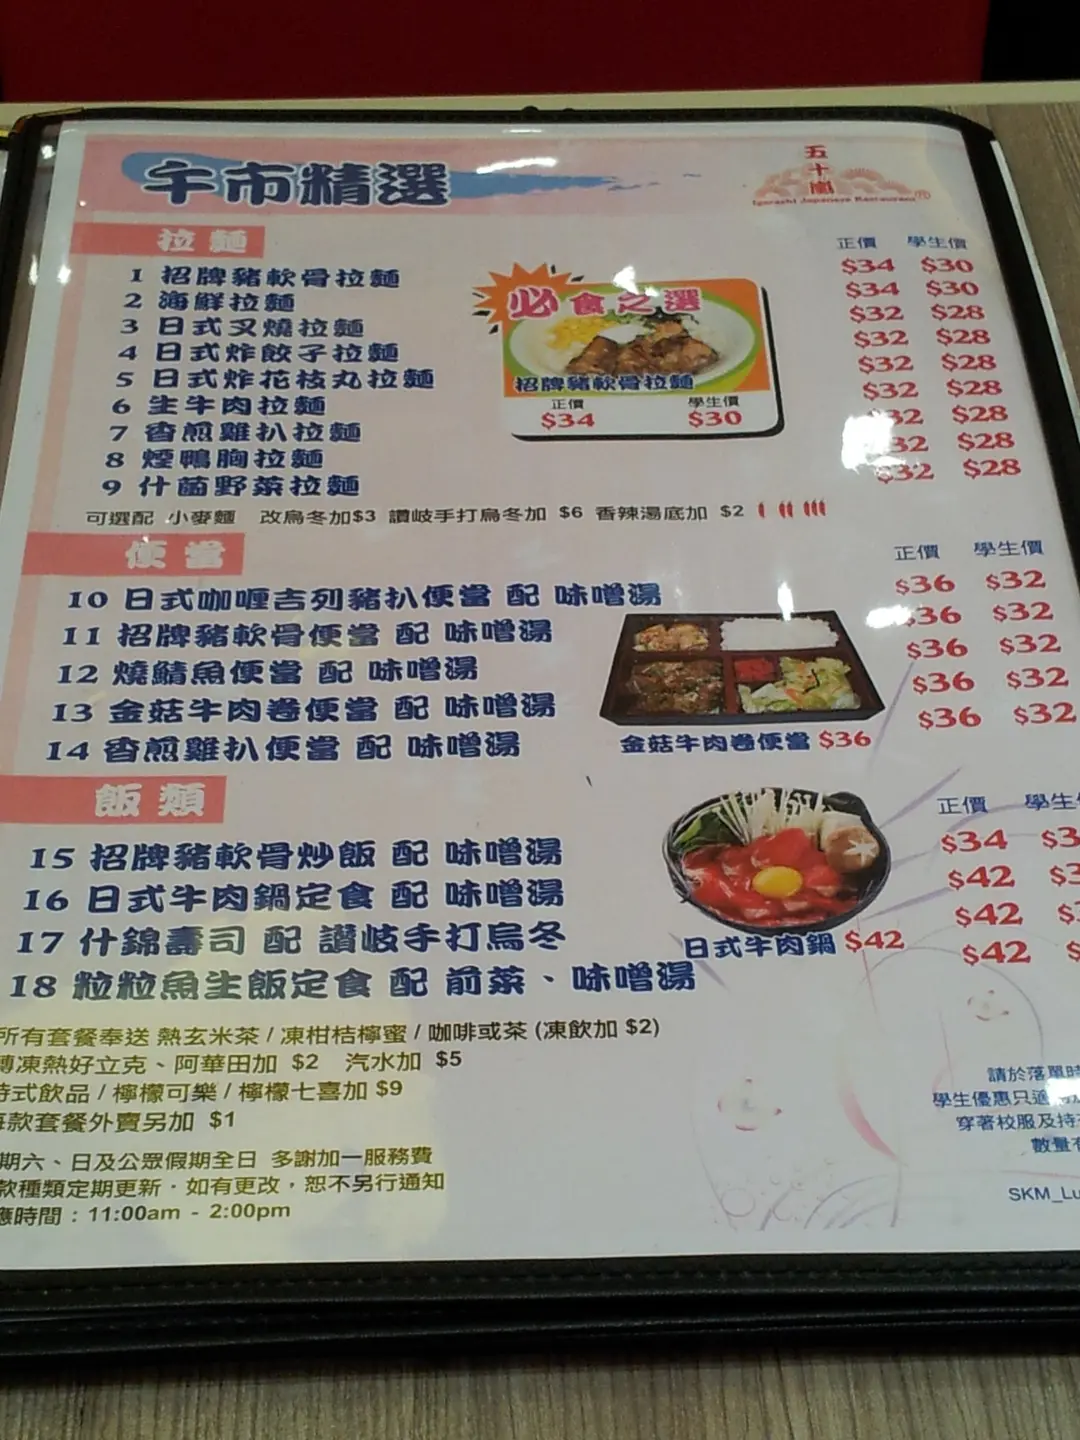 午市精選
五十嵐
Igarashi Japanese Restaurant
拉麵
正價 學生價
1 招牌豬軟骨拉麵 $34 $30
2 海鮮拉麵 $34 $30
3 日式叉燒拉麵 $32 $28
4 日式炸餃子拉麵 $32 $28
5 日式炸花枝丸拉麵 $32 $28
6 生牛肉拉麵 $32 $28
7 香煎雞扒拉麵 $32 $28
8 煙鴨胸拉麵 $32 $28
9 什菌野菜拉麵 $32 $28
必食之選
招牌豬軟骨拉麵
正價 學生價
$34 $30
可選配 小麥麵 改烏冬加$3 讚岐手打烏冬加 $6 香辣湯底加 $2
便當
正價 學生價
10 日式咖喱吉列豬扒便當 配 味噌湯 $36 $32
11 招牌豬軟骨便當 配 味噌湯 $36 $32
12 燒鯖魚便當 配 味噌湯 $36 $32
13 金菇牛肉卷便當 配 味噌湯 $36 $32
14 香煎雞扒便當 配 味噌湯 $36 $32
金菇牛肉卷便當 $36
飯類
正價 學生
15 招牌豬軟骨炒飯 配 味噌湯 $34 $3
16 日式牛肉鍋定食 配 味噌湯 $42 $3
17 什錦壽司 配 讚岐手打烏冬 $42 $
18 粒粒魚生飯定食 配 前菜、味噌湯 $42 $
日式牛肉鍋 $42
所有套餐奉送 熱玄米茶 / 凍柑桔檸蜜 / 咖啡或茶 (凍飲加 $2)
轉凍熱好立克、阿華田加 $2 汽水加 $5
特式飲品 / 檸檬可樂 / 檸檬七喜加 $9
每款套餐外賣另加 $1
期六、日及公眾假期全日 多謝加一服務費
款種類定期更新．如有更改，恕不另行通知
應時間：11:00am - 2:00pm
請於落單時
學生優惠只適
穿著校服及持
數量有
SKM_Lu